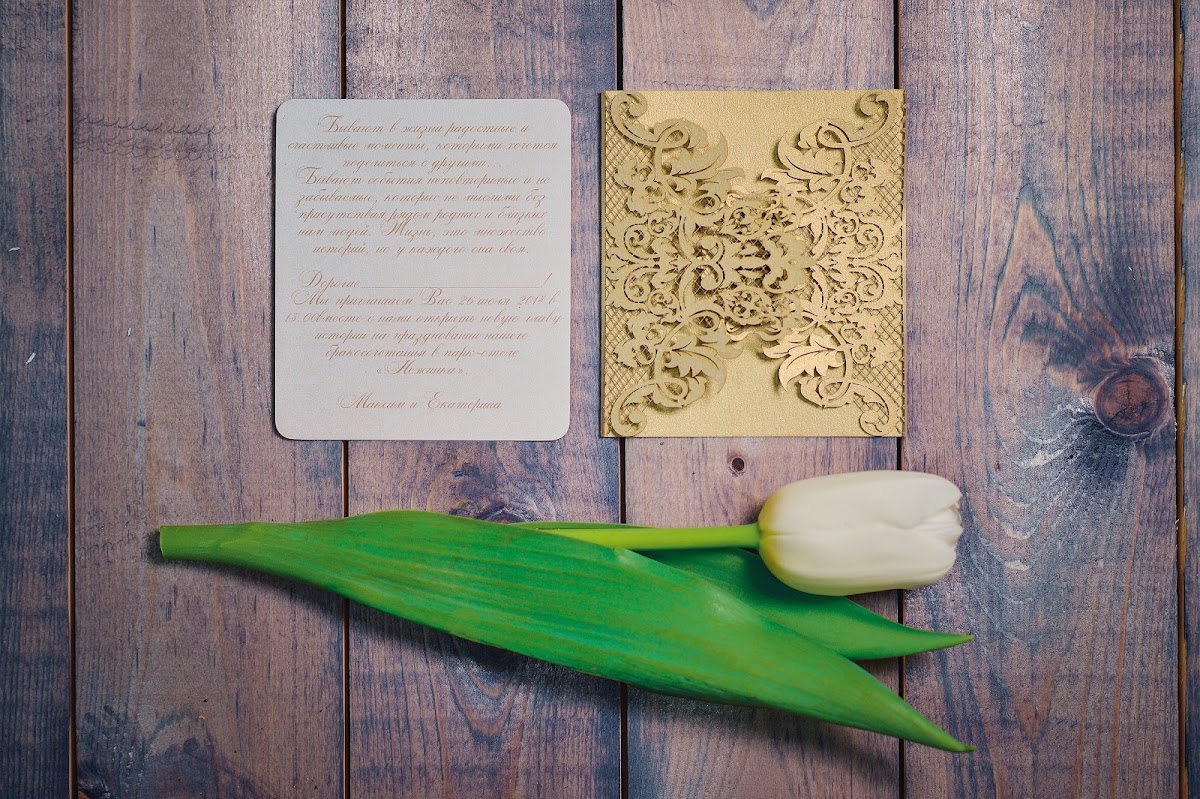 Бывают в жизни радостные и
счастливые моменты, которыми хочется
поделиться с другими...
Бывают события неповторимые и не
забываемые, которые не мыслимы без
присутствия рядом родных и близких
нам людей. Жизнь, это множество
историй, но у каждого она своя.
Дорогие____________________!
Мы приглашаем Вас 26 июля 2014 в
15:00вместе с нами открыть новую главу
истории на праздновании нашего
бракосочетания в парк-отеле
Максим и Екатерина